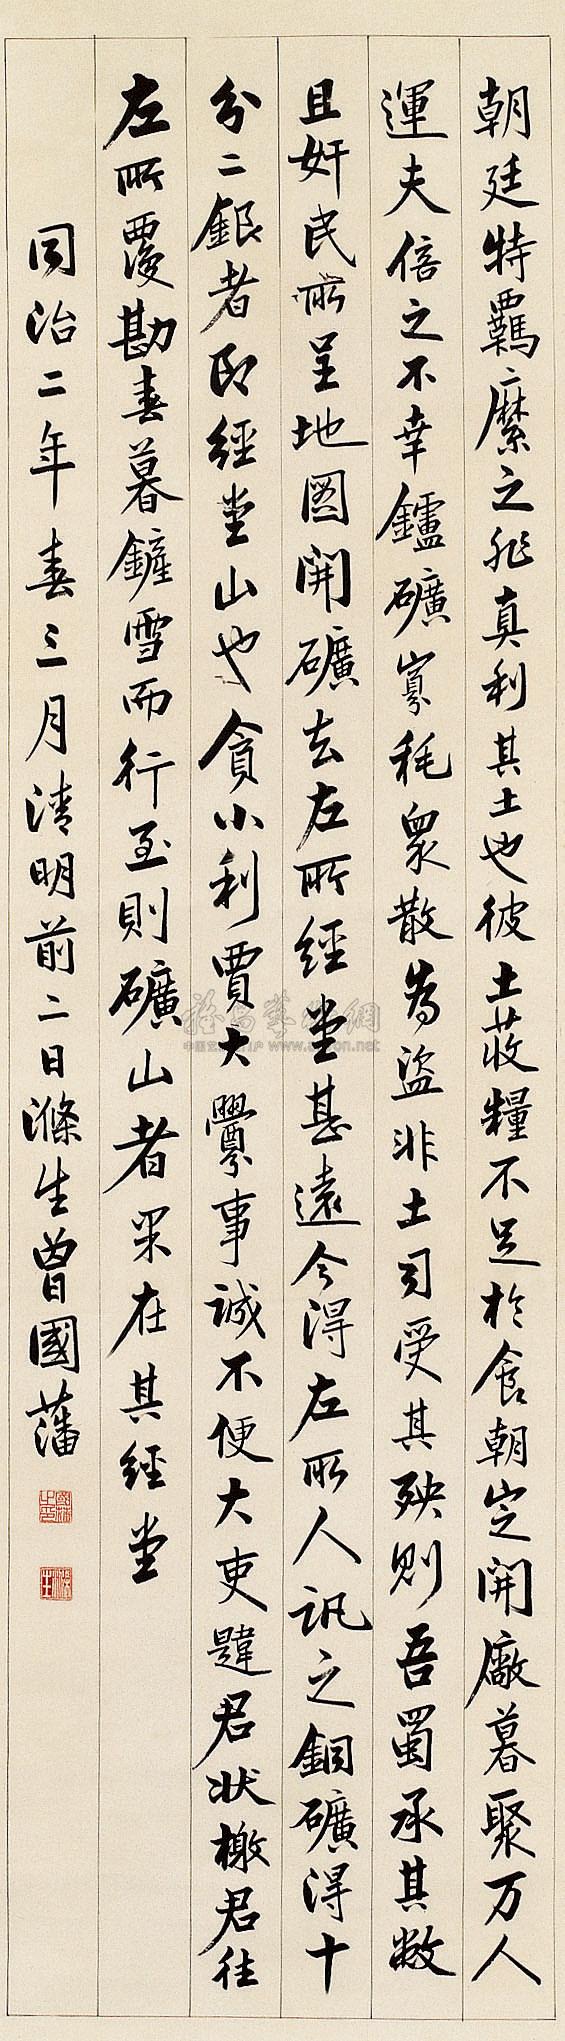 朝廷特羈縻之非真利其土也彼土莊糧不足於食朝定開廠暮聚万人
運夫倍之不幸鑪礦寡耗眾散為盜非土司受其殃則吾蜀承其敝
且奸民所呈地圖開礦去左所經堂甚遠今得左所人訊之銅礦得十
分二銀者即經堂山也貪小利賈大釁事誠不便大吏韙君狀檄君往
左所覆勘春暮鏟雪而行至則礦山者果在其經堂
同治二年春三月清明前二日滌生曾國藩